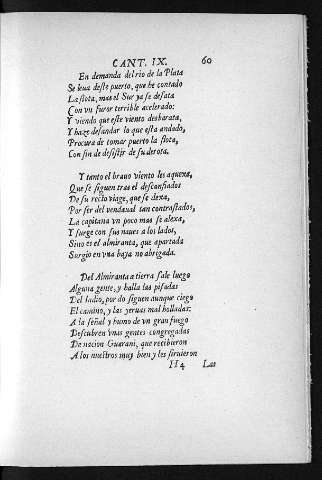 CANT. IX. 60
En demanda del rio de la Plata
Se leua deste puerto, que he contado
La flota, mas el Sur ya se desata
Con vn furor terrible acelerado:
Y viendo que este viento desbarata,
Y haze desandar lo que està andado,
Procura de tomar puerto la flota,
Con fin de desistir de su derota.
Y tanto el brauo viento les aquexa,
Que se siguen tras el desconfiados
De su recto viage, que se dexa,
Por ser del vendaual tan contrastados,
La capitana vn poco mas se alexa,
Y surge con sus naues a los lados,
Sino es el almiranta, que apartada
Surgio en vna baya no abrigada.
Del Almiranta a tierra sale luego
Alguna gente, y halla las pisadas
Del Indio, por do siguen aunque ciego
El camino, y las yeruas mal holladas:
A la señal y humo de vn gran fuego
Descubren vnas gentes congregadas
De nacion Guarani, que recibieron
A los nuestros muy bien y les siruieron
H 4 Las